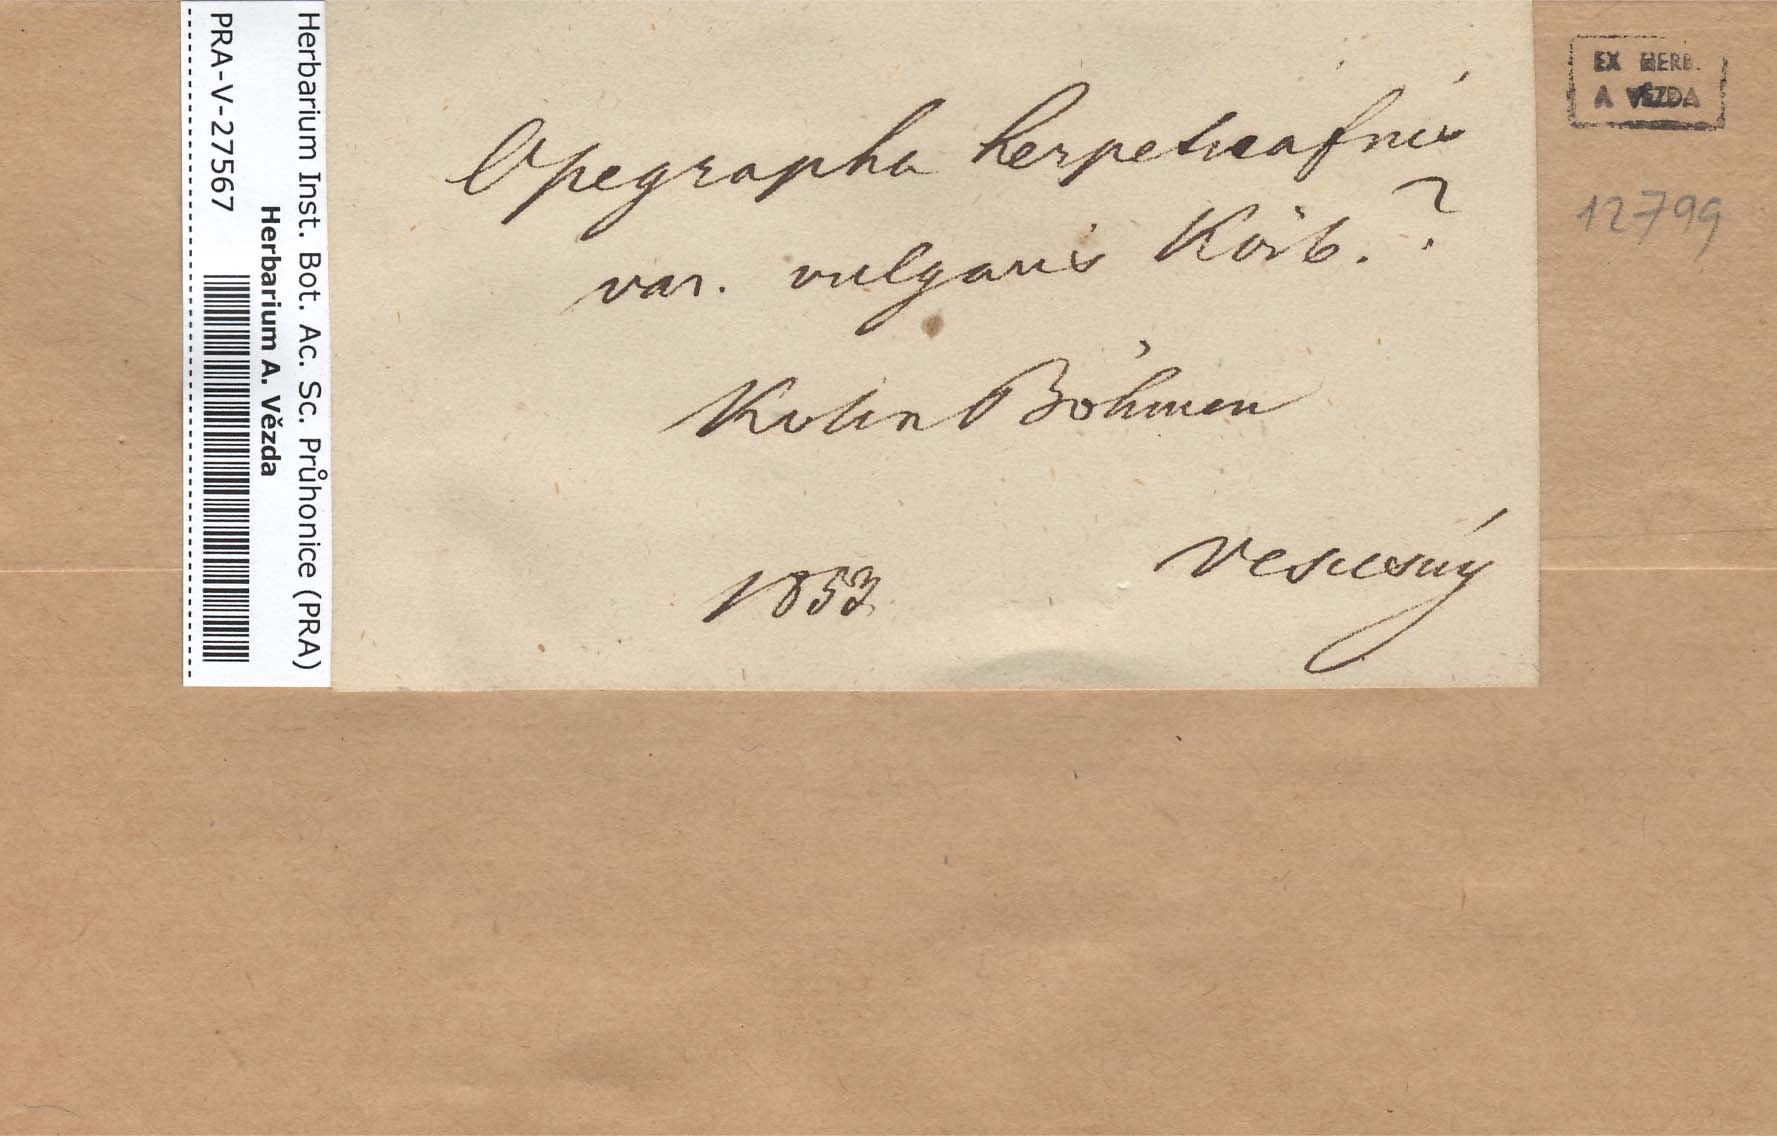 Herbarium Inst. Bot. Ac. Sc. Průhonice (PRA)
Herbarium A. Vězda
PRA-V-27567
Opegrapha
var. vulgaris Körb. ?
Kolin Böhmen
1853
EX HERB.
A VĚZDA
12799